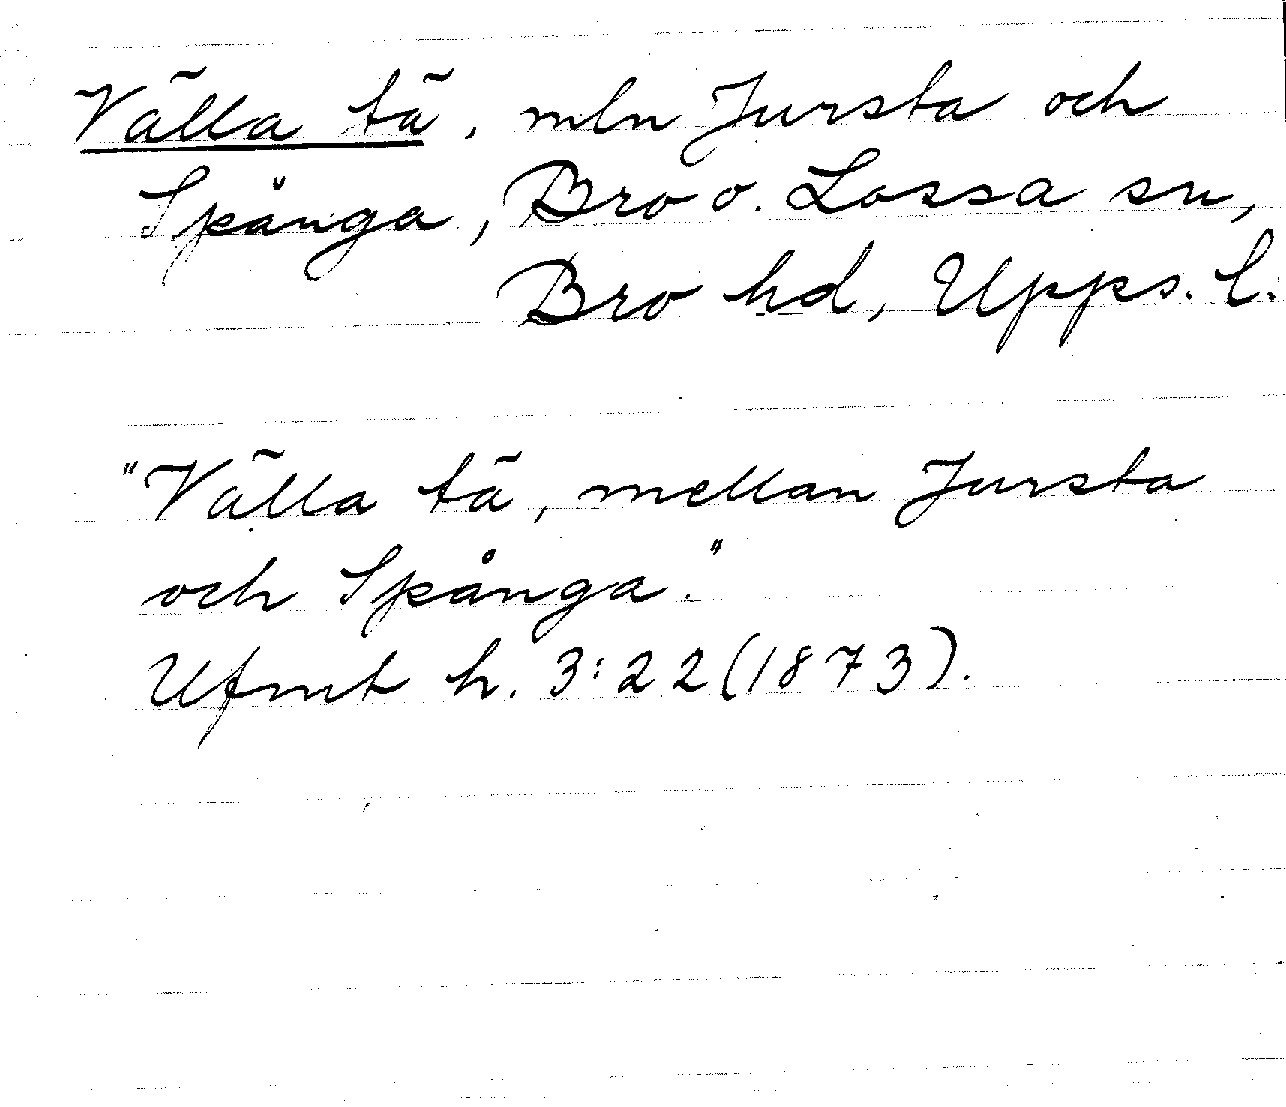 Välla tä, mln Jursta och
Spånga, Bro o. Lossa sn,
Bro hd, Upps. l.
"Välla tä, mellan Jursta
och Spånga."
Ufmt h. 3:22 (1873).